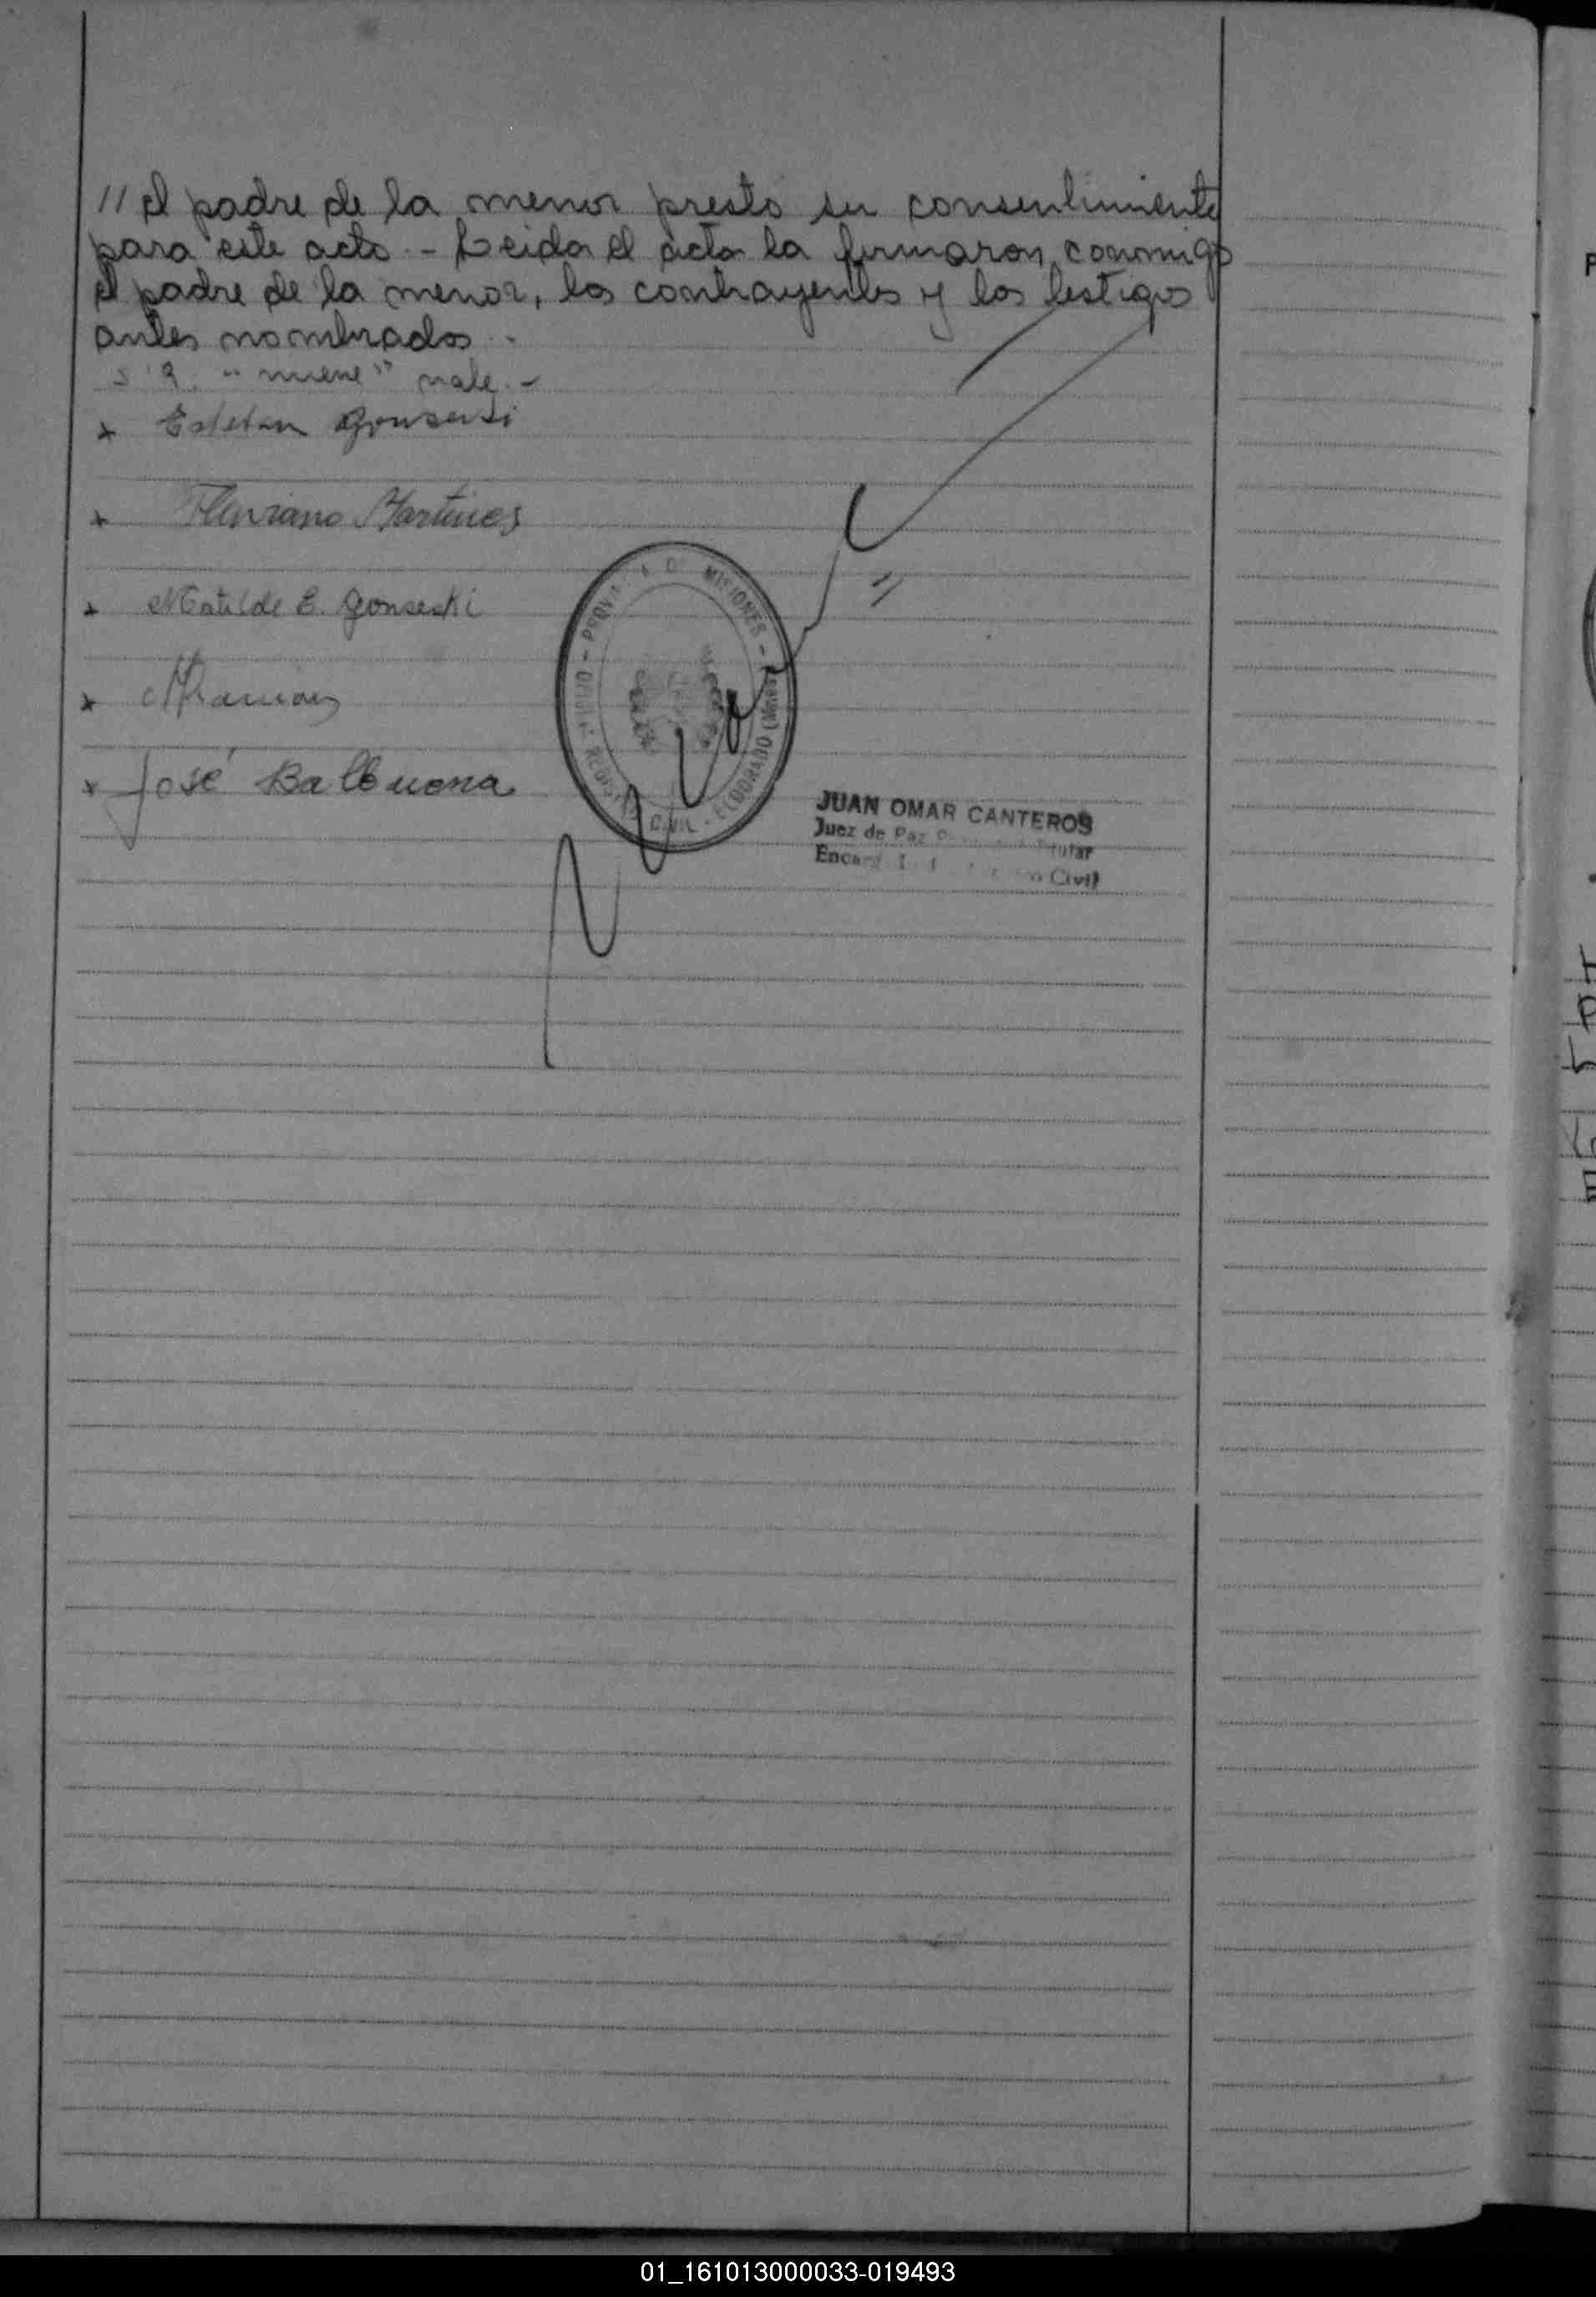 // el padre de la menor prestó su consentimiento
para este acto. - Leida el acta la firmaron conmigo
el padre de la menor, los contrayentes y los testigos
antes nombrados.
"nueve" vale. -
x Esteban Gonseski
x Martines
x Matilde E. Gonseski
x
x José Balbuena
MISIONES - ELDORADO
CIVIL
JUAN OMAR CANTEROS
Juez de Paz Titular
Civil
01_161013000033-019493